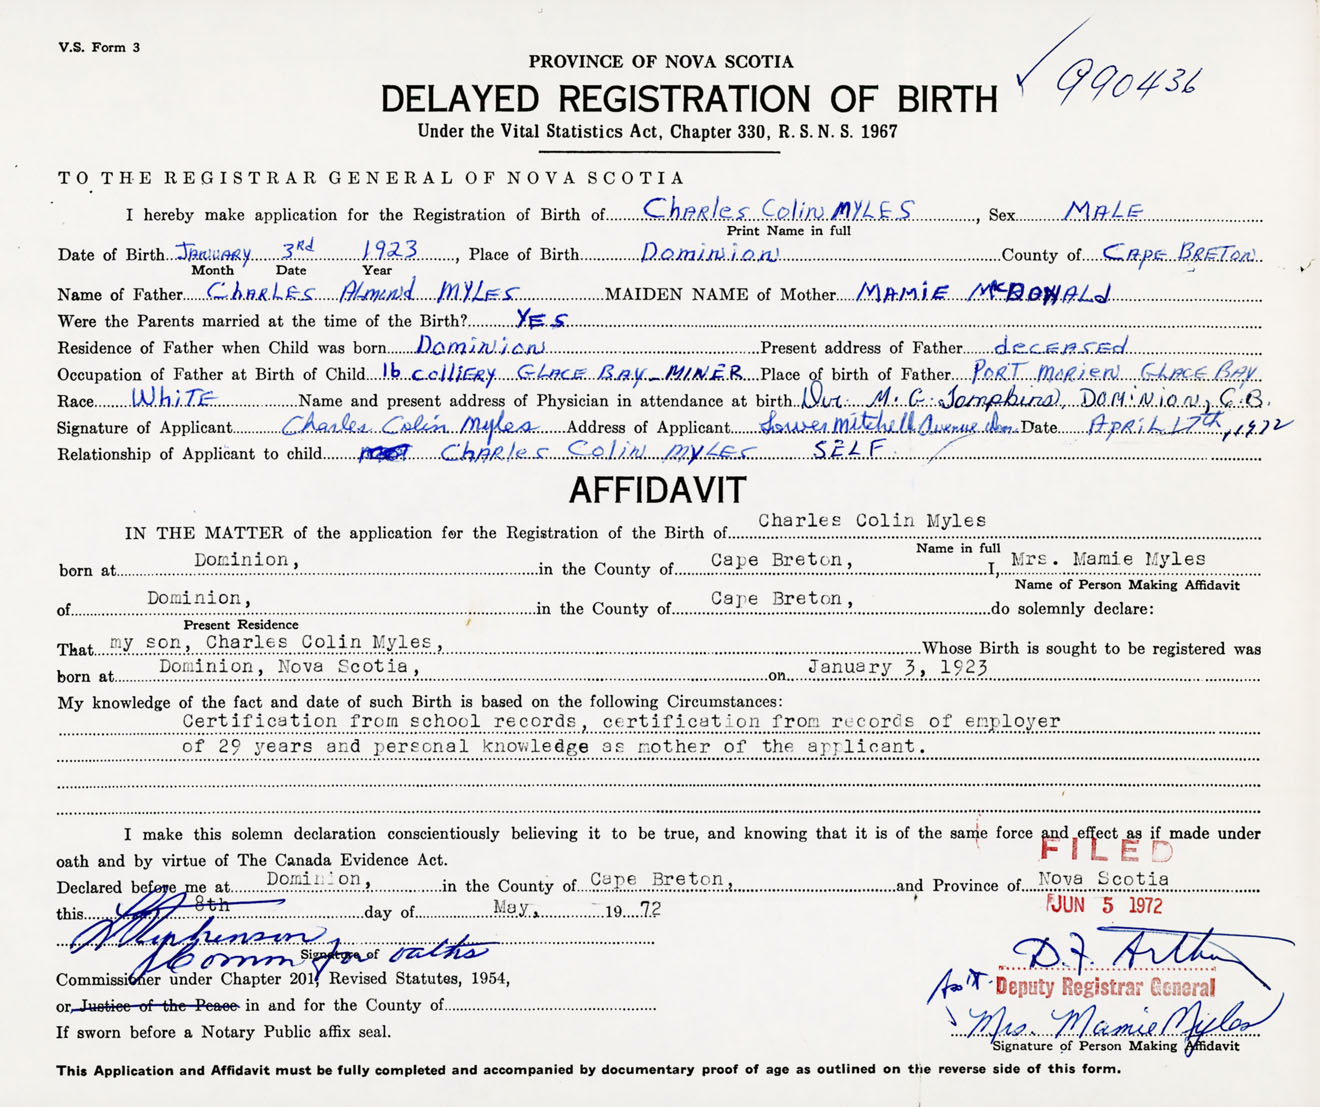 V.S. Form 3
PROVINCE OF NOVA SCOTIA
990436
DELAYED REGISTRATION OF BIRTH
Under the Vital Statistics Act, Chapter 330, R. S. N. S. 1967
TO THE REGISTRAR GENERAL OF NOVA SCOTIA
I hereby make application for the Registration of Birth of Charles Colin MYLES, Sex MALE
Print Name in full
Date of Birth JANUARY 3Rd 1923, Place of Birth Dominion County of CAPE BRETON
Month Date Year
Name of Father CHARLES Almond MYLES MAIDEN NAME of Mother MAMIE McDONALd
Were the Parents married at the time of the Birth? YES
Residence of Father when Child was born Dominion Present address of Father deceased
Occupation of Father at Birth of Child 1b COLLIERY GLACE BAY - MINER Place of birth of Father PORT MORIEN GLACE BAY
Race White Name and present address of Physician in attendance at birth Dr. M. G. Tompkins, DOMINION, C.B.
Signature of Applicant Charles Colin Myles Address of Applicant Lower Mitchell Avenue Dom. Date APRIL 17th, 1972
Relationship of Applicant to child CHARLES COLIN MYLES SELF
AFFIDAVIT
IN THE MATTER of the application for the Registration of the Birth of Charles Colin Myles
Name in full
born at Dominion, in the County of Cape Breton, I, Mrs. Mamie Myles
Name of Person Making Affidavit
of Dominion, in the County of Cape Breton, do solemnly declare:
Present Residence
That my son, Charles Colin Myles, Whose Birth is sought to be registered was
born at Dominion, Nova Scotia, on January 3, 1923
My knowledge of the fact and date of such Birth is based on the following Circumstances:
Certification from school records, certification from records of employer
of 29 years and personal knowledge as mother of the applicant.
I make this solemn declaration conscientiously believing it to be true, and knowing that it is of the same force and effect as if made under
oath and by virtue of The Canada Evidence Act.
FILED
Declared before me at Dominion, in the County of Cape Breton, and Province of Nova Scotia
this 8th day of May, 1972
JUN 5 1972
Stephenson
Comm for oaths
Signature of
D.F. Arthur
Commissioner under Chapter 201, Revised Statutes, 1954,
Ass't. Deputy Registrar General
or Justice of the Peace in and for the County of
Mrs. Mamie Myles
If sworn before a Notary Public affix seal.
Signature of Person Making Affidavit
This Application and Affidavit must be fully completed and accompanied by documentary proof of age as outlined on the reverse side of this form.